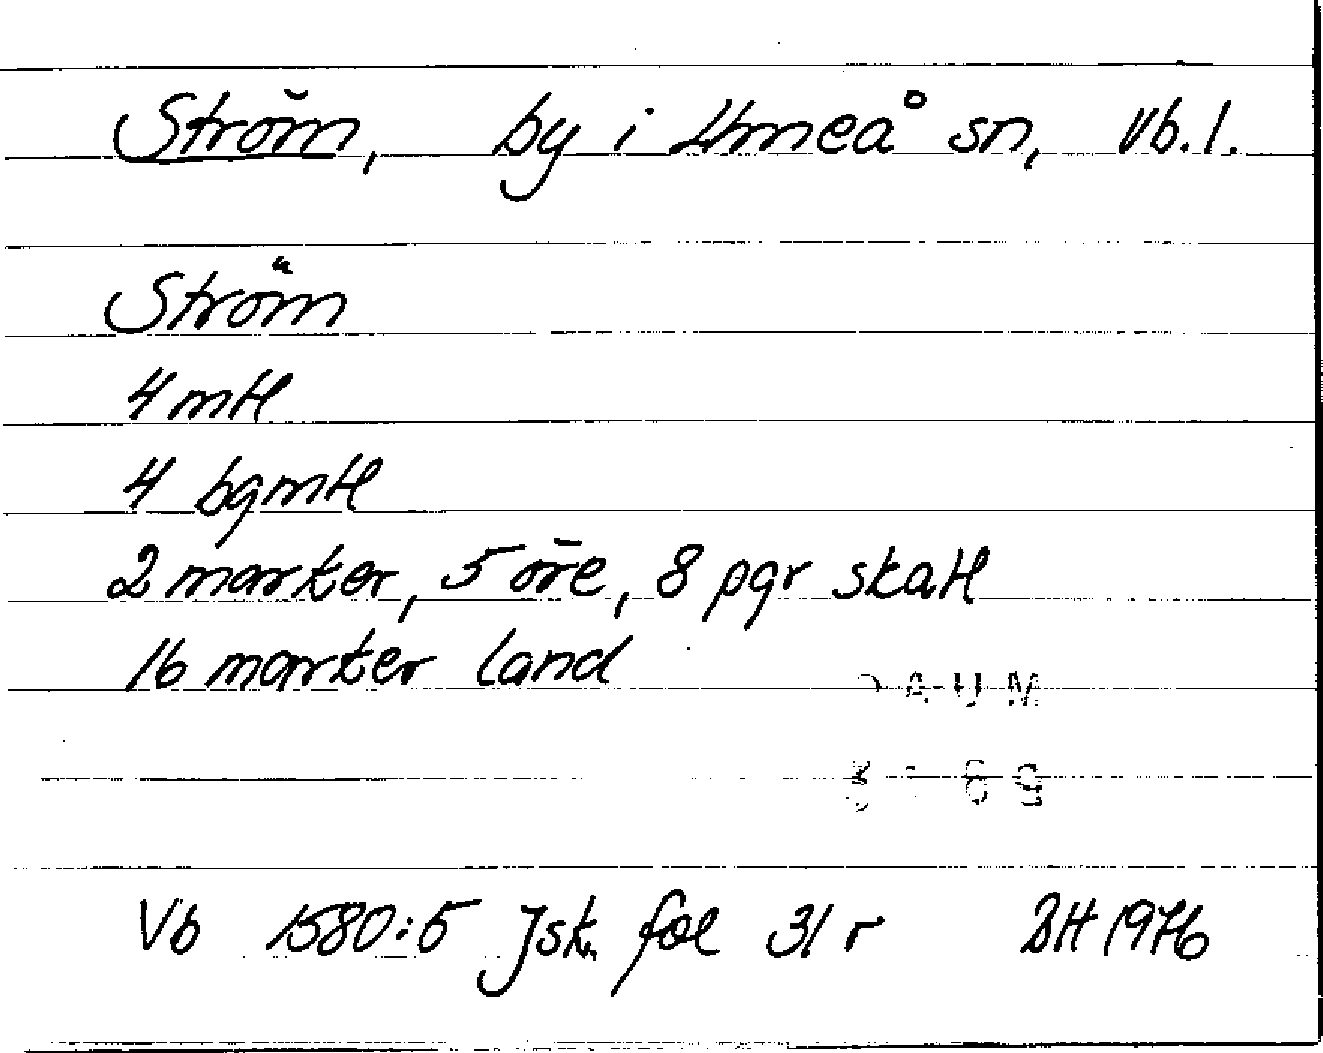 Ström, by i Umeå sn, Vb.l.
Ström
4 mtl
4 bgmtl
2 marker, 5 öre, 8 pgr skatt
16 marker land
DAUM
Vb 1580:5 Jsk. fol 31 r BH 1976